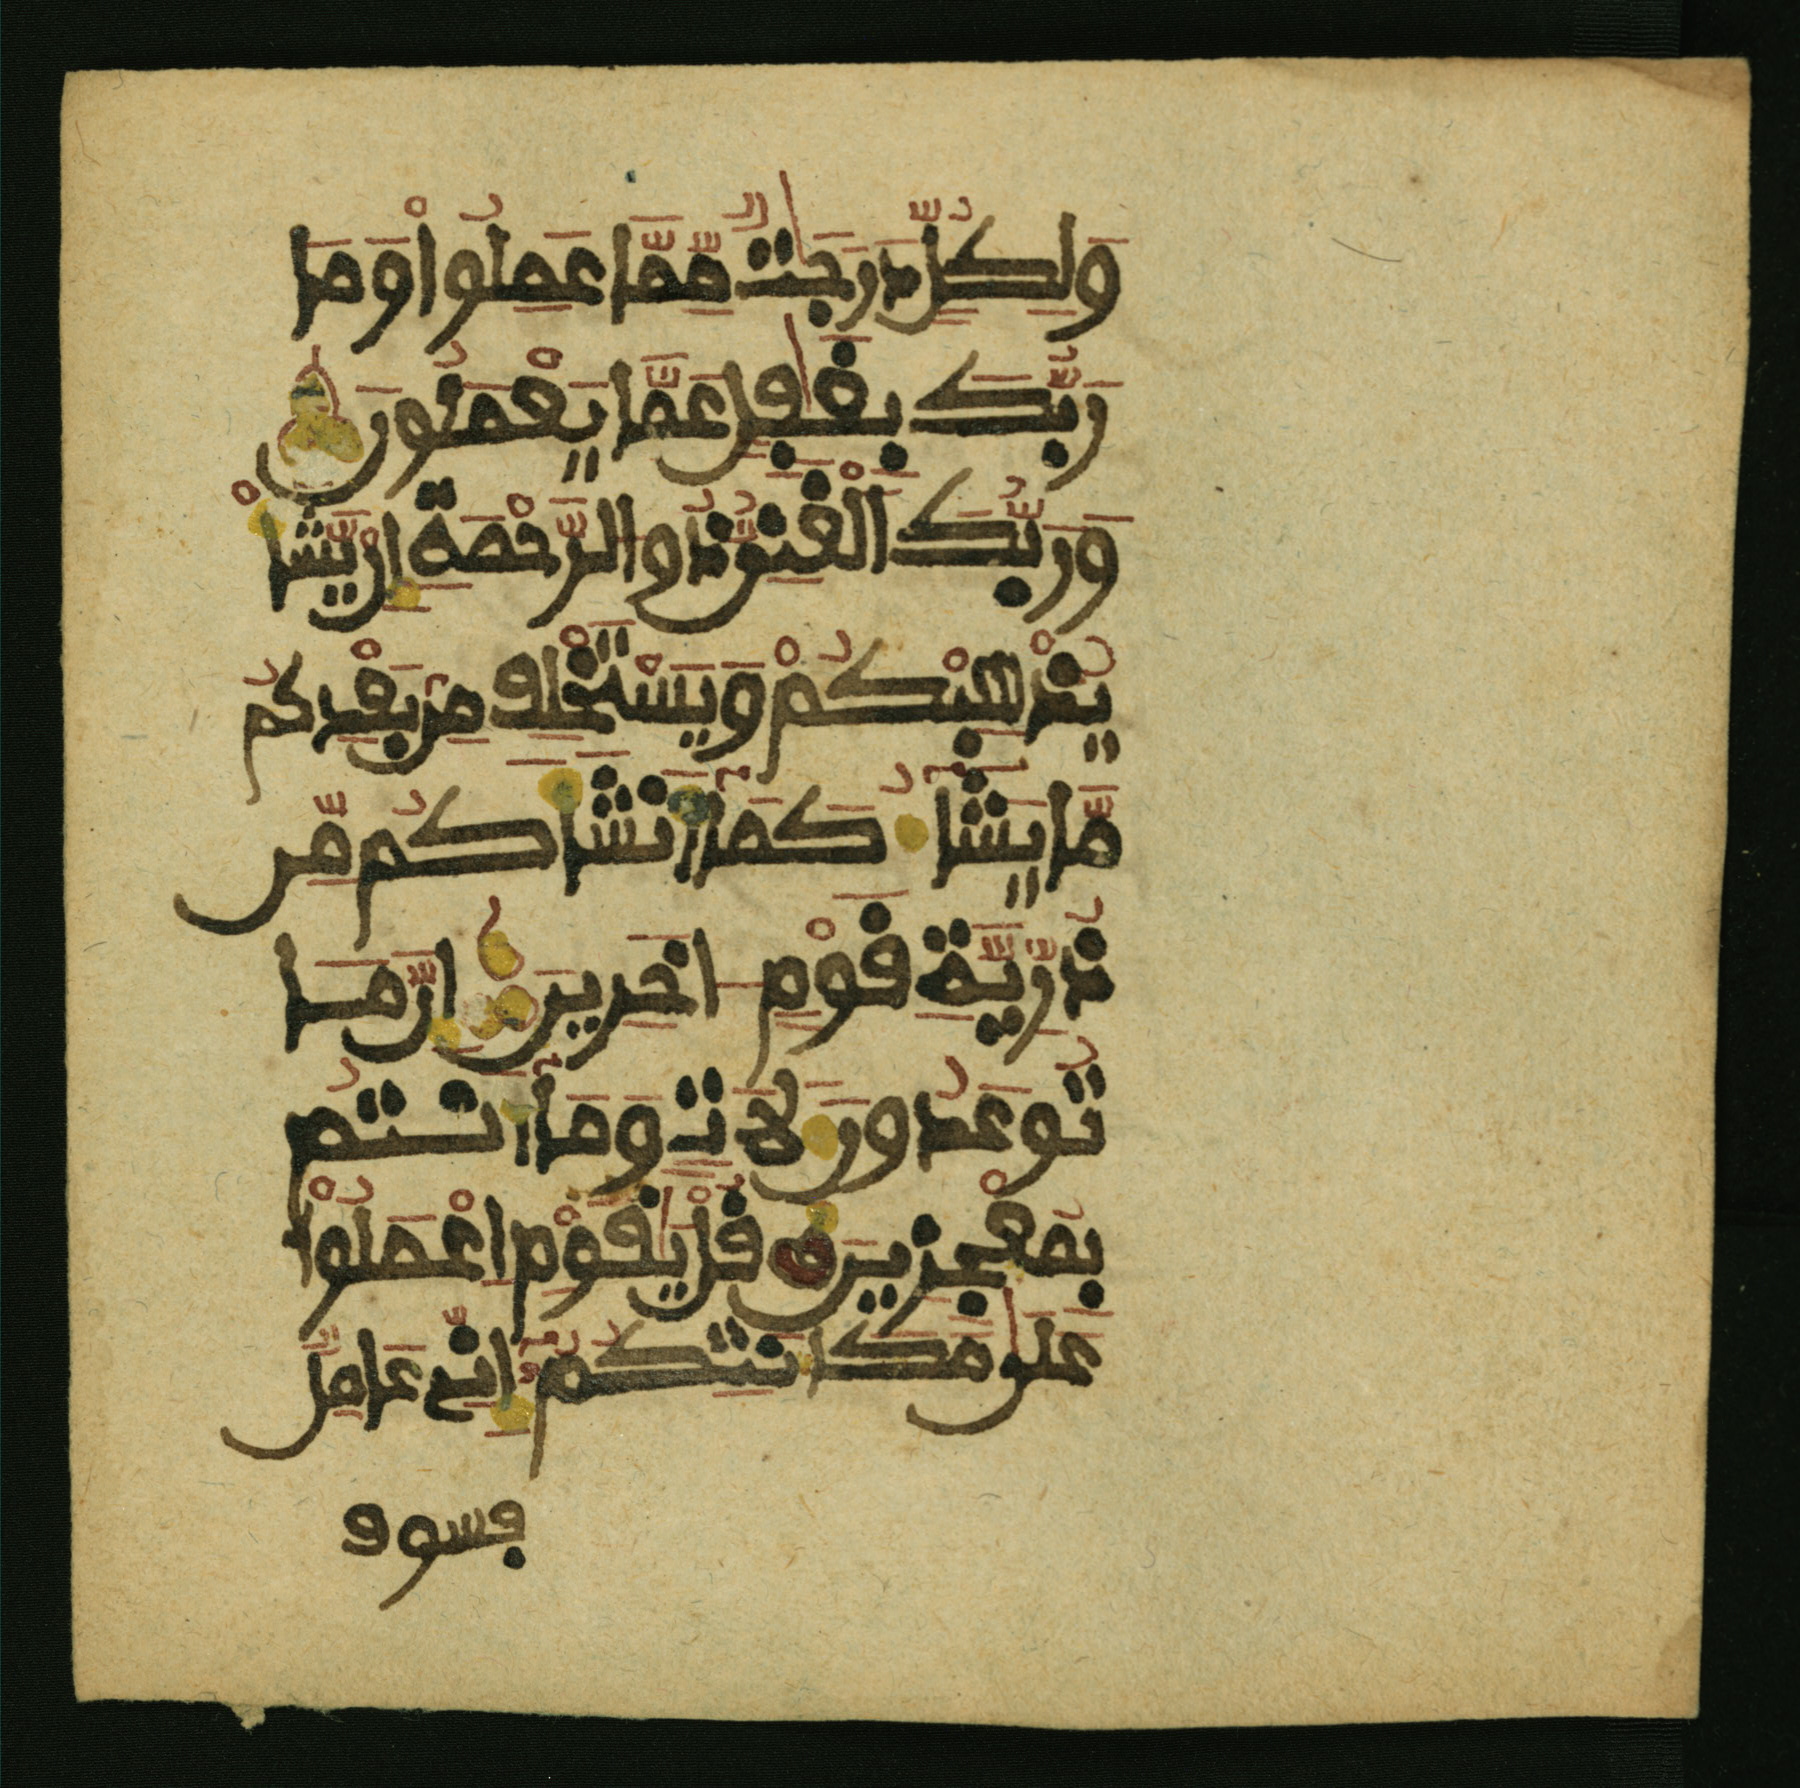 وَلِكُلٍّ دَرَجَٰتٌ مِّمَّا عَمِلُواْ وَمَا
رَبُّكَ بِغَٰفِلٍ عَمَّا يَعْمَلُونَ
وَرَبُّكَ اَلْغَنِيُّ ذُو الرَّحْمَةِ إِنْ يَّشَأْ
يُذْهِبْكُمْ وَيَسْتَخْلِفْ مِنۢ بَعْدِكُم
مَّا يَشَآءُ كَمَآ أَنشَأَكُم مِّن
ذُرِّيَّةِ قَوْمٍ اٰخَرِينَ إِنَّ مَا
تُوعَدُونَ لَأٓتٍ وَمَآ أَنتُم
بِمُعْجِزِينَ قُلْ يَٰقَوْمِ اِعْمَلُواْ
عَلَىٰ مَكَانَتِكُمُۥٓ إِنِّے عَامِلٌ
فسوف